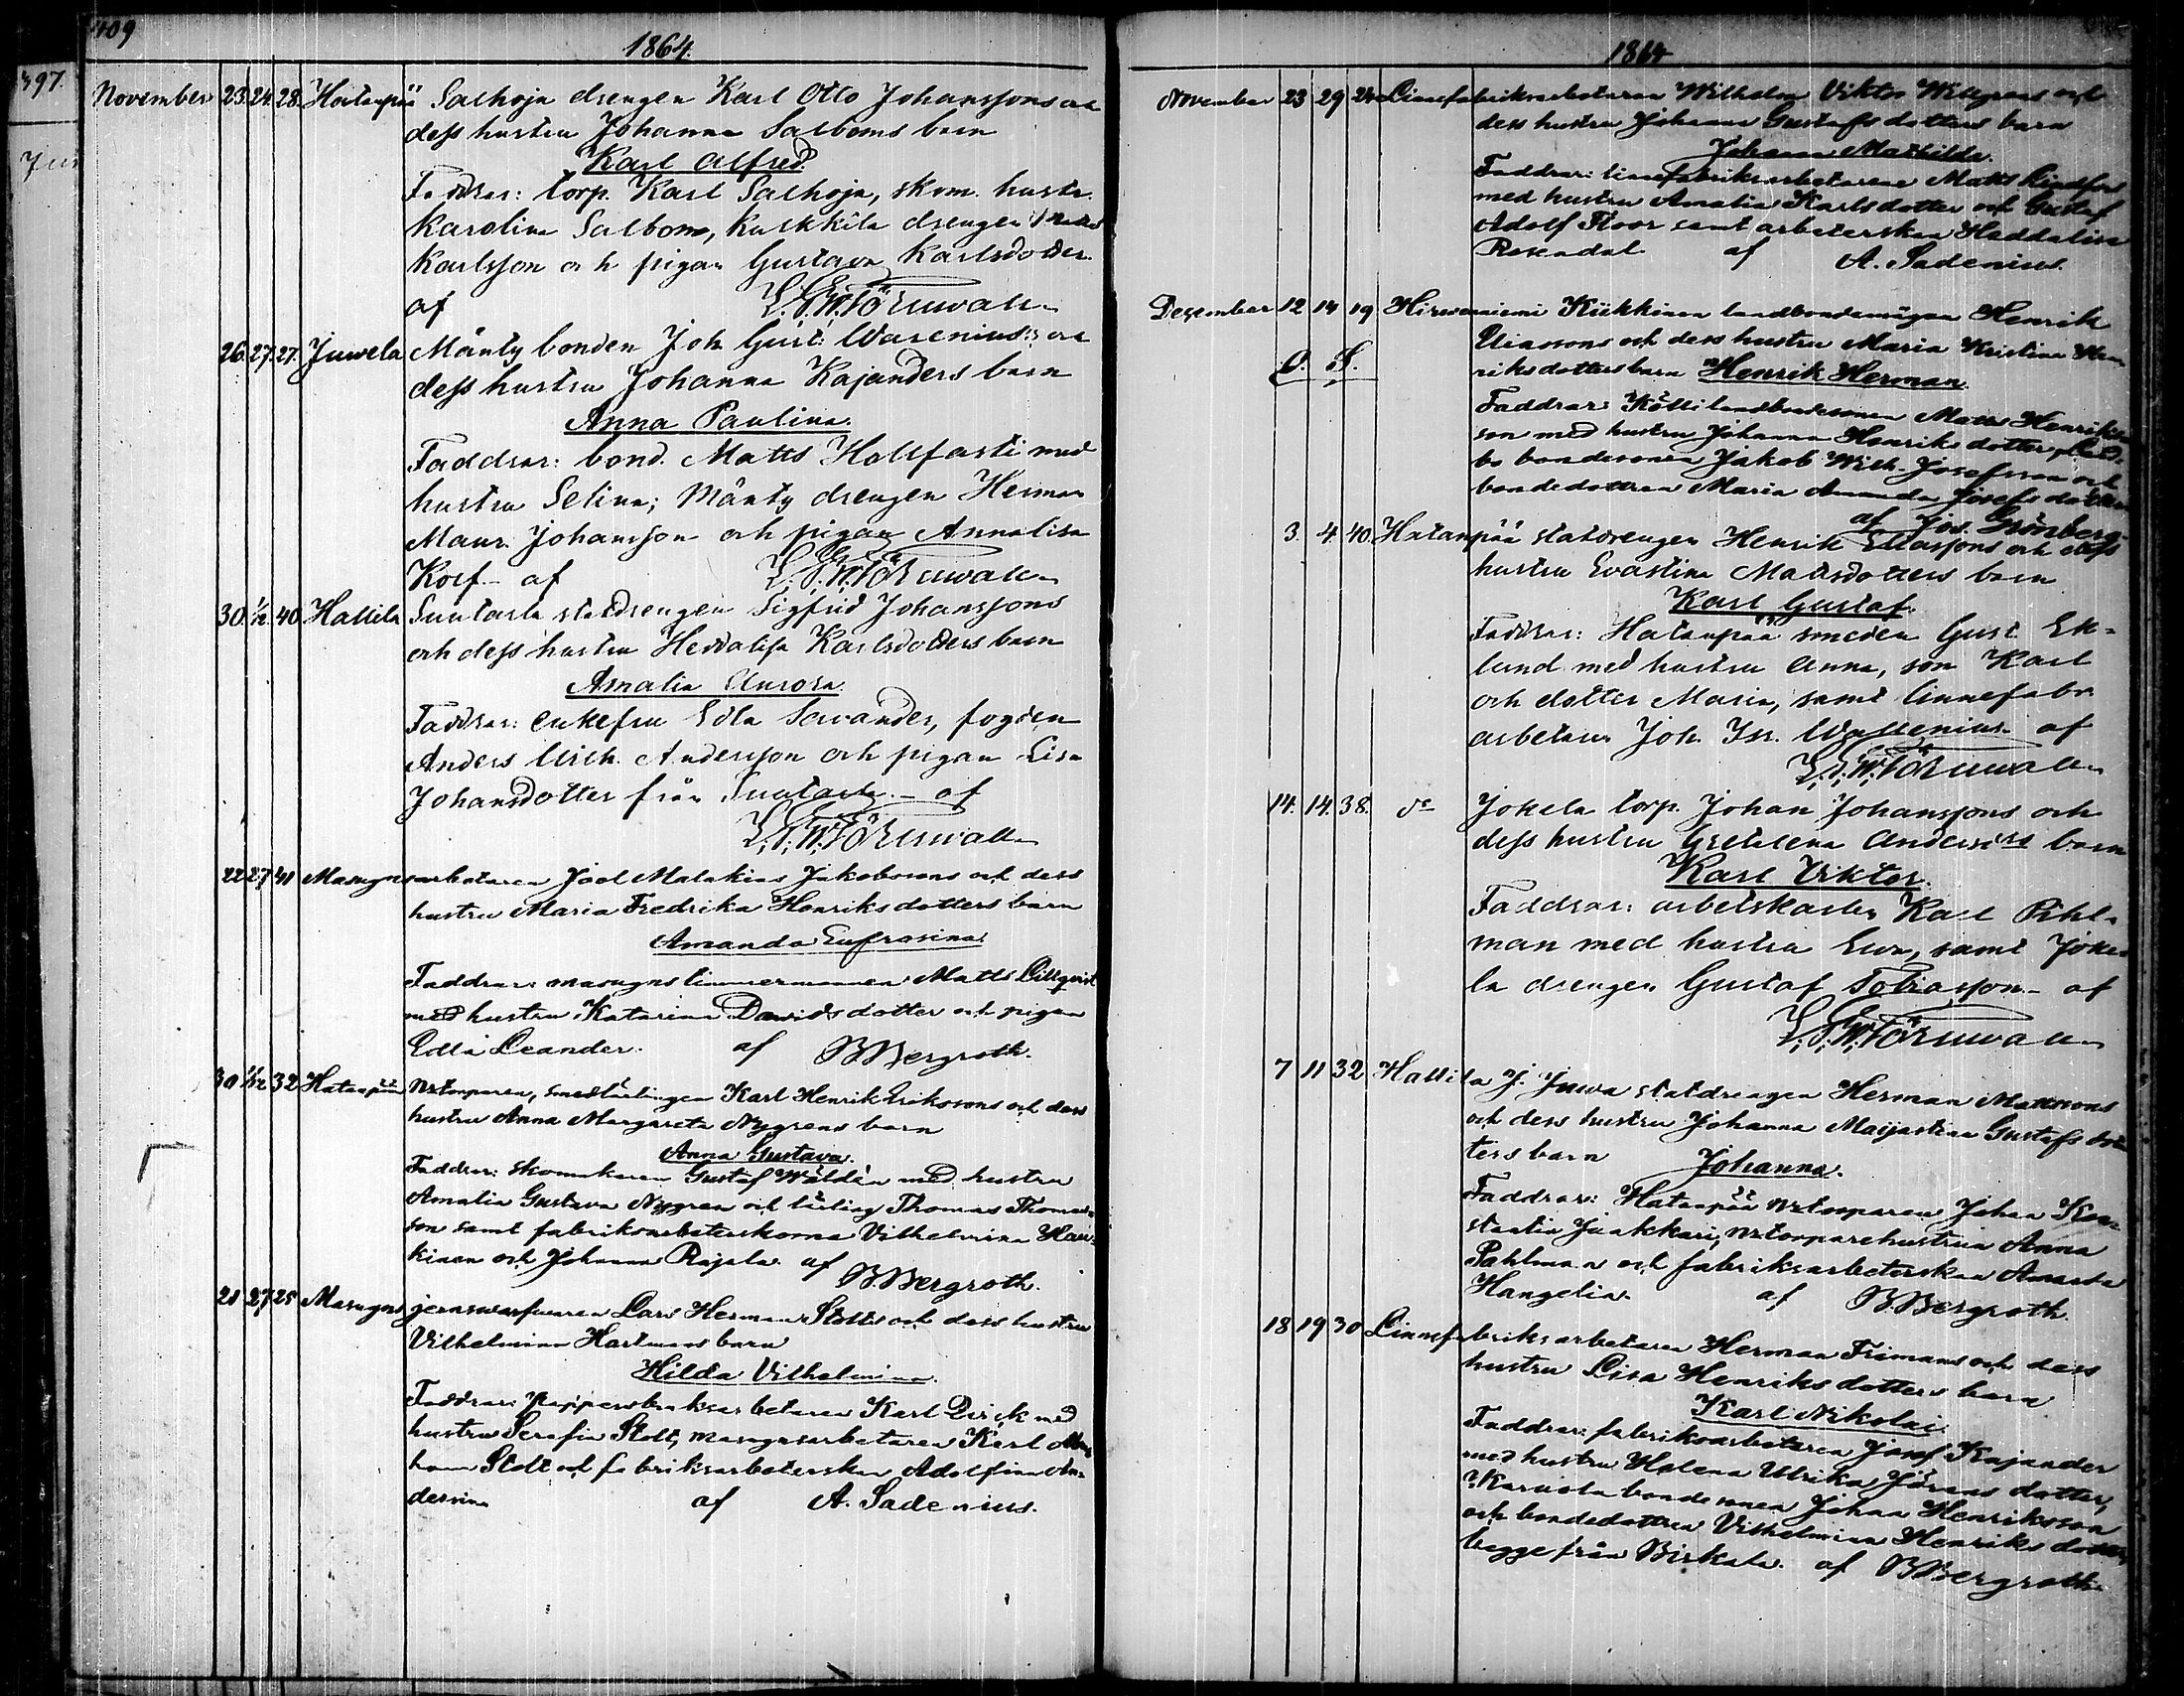 409
1864.
397.
November 23. 24. 28. Hatanpää Salhoja drengen Karl Otto Johanssons och
dess hustru Johanna Salboms barn
Karl Alfred.
Faddrar: torp. Karl Salhoja, skom. hustr.
Karolina Salbom, drengen
Karlsson och pigan Gustava Karlsdotter.
af
26. 27. 27. Juwela Mänty bonden Joh. Gust. Warenius's och
dess hustru Johanna Kajanders barn
Anna Paulina.
Faddrar: bond. Matts Hollfasti med
hustru Selina; Mänty drengen Herman
Maur. Johansson och pigan Annalisa
Korf. af
30. 1/12 40 Hallila Suutarla statdrengen Sigfrid Johanssons
och dess hustru Heddalisa Karlsdotters barn
Amalia Aurora.
Faddrar: enkefru Edla Servander, fogden
Anders Ulrik Andersson och pigan Lisa
Johansdotter från Suutarla. - af
22 27 41 Masugnsarbetaren Joel Malakias Jakobssons och dess
hustru Maria Fredrika Henriksdotters barn
Amanda Eufrosina
Faddrar: masugnstimmermannen Matts Lillqvist
med hustru Katarina Davidsdotter och pigan
Edla Leander. af B Bergroth.
30 1/12 32 Hatanpää Nrtorparen, smedlärlingen Karl Henrik Erikssons och dess
hustru Anna Margareta Nygrens barn
Anna Gustava.
Faddrar: skomakaren Gustaf Waldén med hustru
Amalia Gustava Nygren och lärling Thomas Thomas-
son samt fabriksarbeterskorna Vilhelmina Hei-
kinen och Johanna Rajala. af B. Bergroth.
21 27 25 Masugns jernsvarfvaren Lars Herman Stolts och dess hustru
Vilhelmina Hartmans barn
Hilda Vilhelmina.
Faddrar: Pappersbruksarbetaren Karl med
hustru Serafia Stolt, masugnsarbetaren Karl
Stolt och fabriksarbeterskan Adolfina An-
dersin af A. Sadenius.
1864
November 23 29 24 Linnefabriksarbetaren Wilhelm Viktor och
dess hustru Johanna Gustafsdotters barn
Johanna Mathilda.
Faddrar: linnefabriksarbetaren Matts Lindfors
med hustru Amalia Karlsdotter och Gustaf
Adolf Floor samt arbeterskan Heddalisa
Rosendal af A. Sadenius.
December 12 14 19 Hirwaniemi Kiikkinen landbondemågen Henrik
Eliassons och dess hustru Maria Kristina Hen-
O. S. riksdotters barn Henrik Herman.
Faddrar: Kölli landbondesonen Matts Henriks-
son med hustru Johanna Henriksdotter,
bo bondesonen Jakob Wilh. Josefsson och
bondedottren Maria Amanda Josefsdotter
af Jos. Grönberg.
3. 4. 40. Hatanpää statdrengen Henrik Eliassons och dess
hustru Evastina Mattsdotters barn
Karl Gustaf.
Faddrar: Hatanpää smeden Gust. Ek-
lund med hustru Anna, son Karl
och dotter Maria, samt linnefabr.
arbetaren Joh. Isr. Wallenius. af
14. 14. 38. do Jokela torp. Johan Johanssons och
dess hustru Gretalena Anderssons barn
Karl Viktor.
Faddrar: arbetskarlen Karl Pihl-
man med hustru Eva, samt Joke-
la drengen Gustaf Tobiasson. - af
7 11 32 Hallila J. Juwa statdrengen Herman Mattssons
och dess hustru Johanna Maijastina Gustafsdot-
ters barn Johanna.
Faddrar: Hatanpää Nrtorparen Johan Kon-
stantin Jaakkari, Nrtorparehustrun Anna
Pahlman och fabriksarbeterskan Amanda
Hangelin. af B. Bergroth.
18 19 30 Linnefabriksarbetaren Herman Frimans och dess
hustru Lisa Henriksdotters barn
Karl Nikolai
Faddrar: fabriksarbetaren Josef Kajander
med hustru Helena Ulrika Jöransdotter,
Karuola bondesonen Johan Henriksson
och bondedottren Vilhelmina Henriksdotter,
begge från Birkala. af B Bergroth.